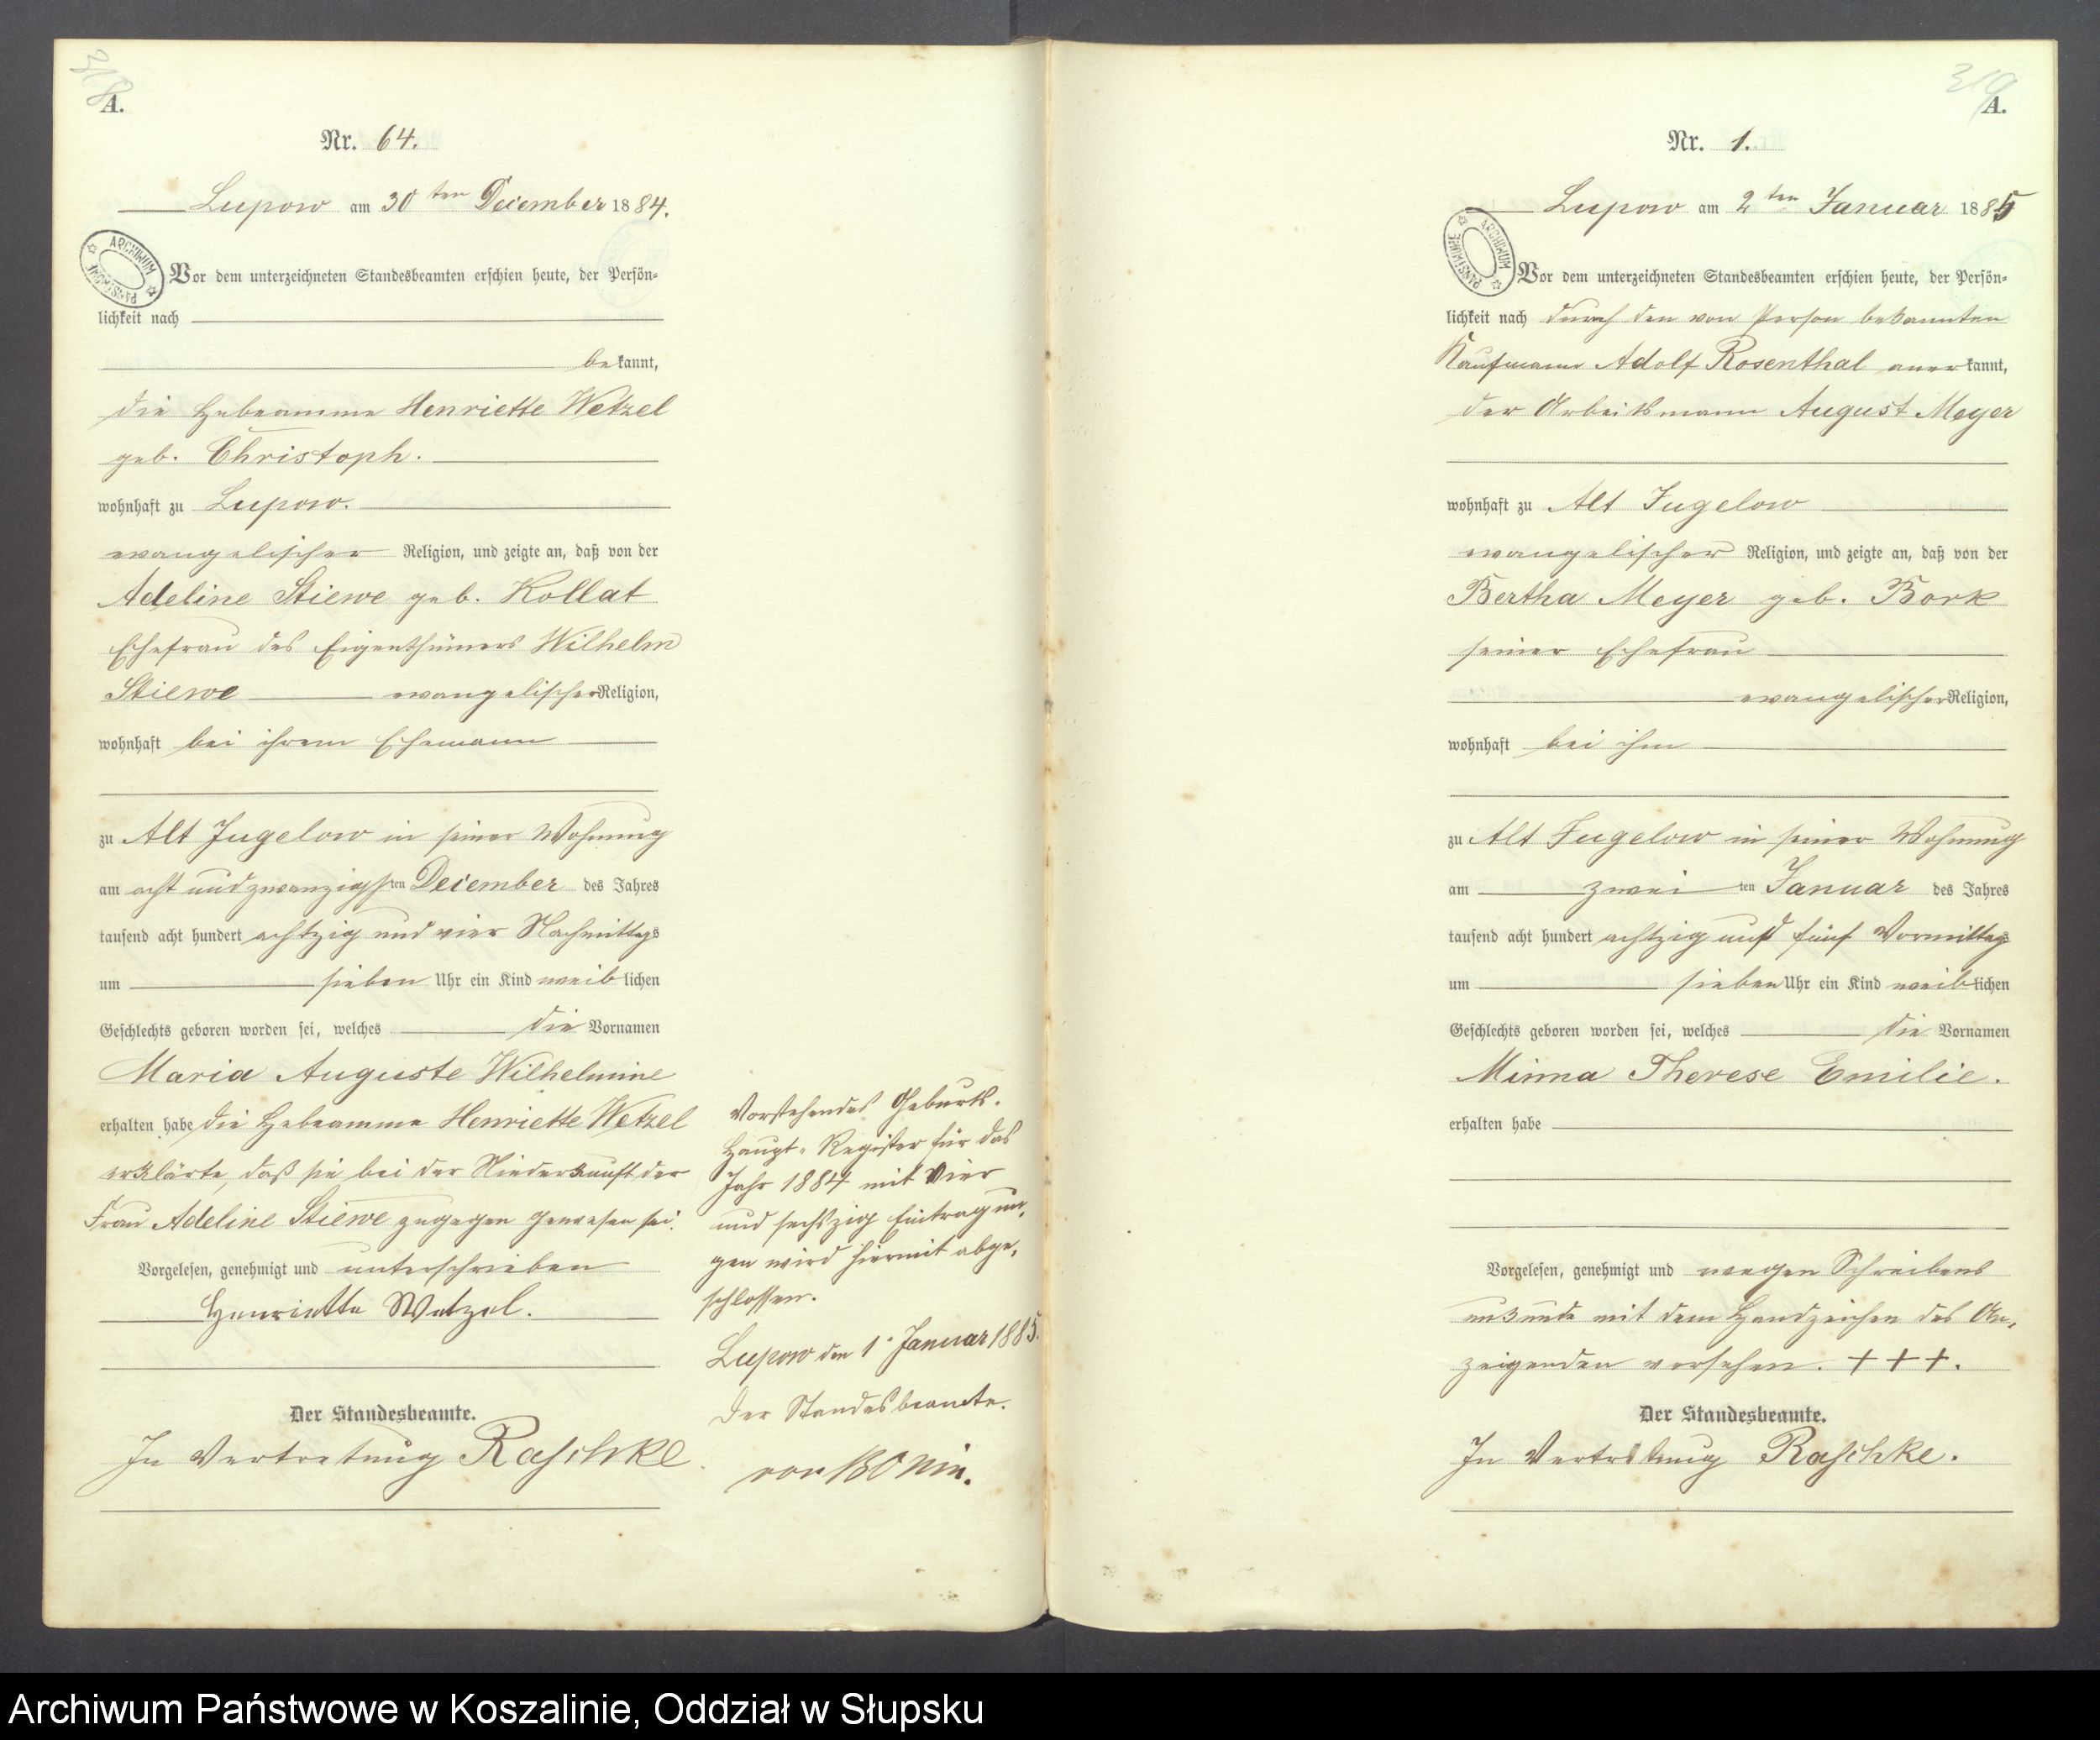 318
A.
Nr. 64.
Lupow am 30ten December 1884.
ARCHIWUM PAŃSTWOWE
Vor dem unterzeichneten Standesbeamten erschien heute, der Persön-
lichkeit nach
bekannt,
die Hebeamme Henriette Wetzel
geb. Christoph.
wohnhaft zu Lupow.
evangelischer Religion, und zeigte an, daß von der
Adeline Stiewe geb. Kollat
Ehefrau des Eigenthümers Wilhelm
Stiewe evangelischer Religion,
wohnhaft bei ihrem Ehemann
zu Alt Jugelow in seiner Wohnung
am acht und zwanzigsten December des Jahres
tausend acht hundert achtzig und vier Nachmittags
um sieben Uhr ein Kind weiblichen
Geschlechts geboren worden sei, welches die Vornamen
Maria Auguste Wilhelmine
erhalten habe die Hebeamme Henriette Wetzel
erklärte, daß sie bei der Niederkunft der
Frau Adeline Stiewe zugegen gewesen sei.
Vorgelesen, genehmigt und unterschrieben
Henriette Wetzel.
Der Standesbeamte.
In Vertretung Raschke.
Vorstehendes Geburts-
Haupt-Register für das
Jahr 1884 mit Vier
und sechszig Eintragun-
gen wird hiermit abge-
schlossen.
Lupow den 1. Januar 1885.
Der Standesbeamte.
von Bonin.
319
A.
Nr. 1.
Lupow am 2ten Januar 1885
ARCHIWUM PAŃSTWOWE
Vor dem unterzeichneten Standesbeamten erschien heute, der Persön-
lichkeit nach durch den von Person bekannten
Kaufmann Adolf Rosenthal anerkannt,
der Arbeitsmann August Meyer
wohnhaft zu Alt Jugelow
evangelischer Religion, und zeigte an, daß von der
Bertha Meyer geb. Bork
seiner Ehefrau
evangelischer Religion,
wohnhaft bei ihm
zu Alt Jugelow in seiner Wohnung
am zweiten Januar des Jahres
tausend acht hundert achtzig und fünf Vormittag
um sieben Uhr ein Kind weiblichen
Geschlechts geboren worden sei, welches die Vornamen
Minna Therese Emilie.
erhalten habe
Vorgelesen, genehmigt und wegen Schreibens
unkunde mit dem Handzeichen des An-
zeigenden versehen. + + +.
Der Standesbeamte.
In Vertretung Raschke.
Archiwum Państwowe w Koszalinie, Oddział w Słupsku